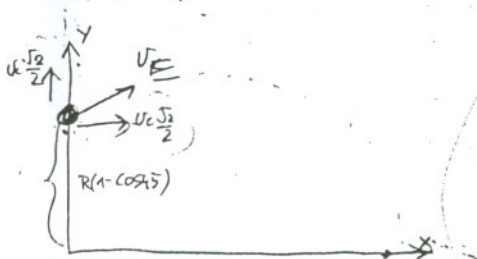 Y
υc √2/2
υE
υc √2/2
R(1-cos45)
X